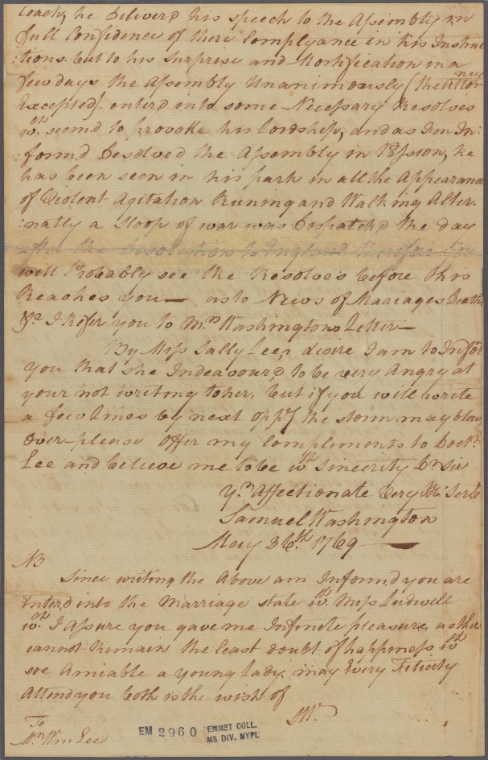 Coach, he Deliverd his speech to the Assembly in
full Confidence of there Complyance in his Instruc
:tions. but to his Surprise and Mortification in a
few days the Assembly Unanimously (the Attor
ney
Excepted) enterd into some Necessary Resolves
wch. seem'd to provoke his Lordship, and as I'm In
:form'd Desolved the Assembly in Passion, he
has been seen in his park in all the Appearance
of Violent Agitation Runing and Walking Alter
:natly a Sloop of war was Dispatchd the day
after the Desolution to England therefore you
will Probably see the Resolves before this
Reaches you — as to News of Marriages Deaths
&c. I Refer you to Mrs. Washingtons Letter —
By Miss Sally Lees desire I am to Inform
you that She Indeavour'd to be very Angry at
your not writing to her, but if you will write
a few lines by next oppy. the storm may blow
Over — please offer my Compliments to Doctr.
Lee and believe me to be wth. Sincerity Dr. Sir
Yr. Affectionate Very Hble Servt.
Samuel Washington
May 36th. 1769 —
NB
Since writing the Above am Inform'd you are
Enterd into the Marriage state wth. Miss Ludwell
wch. I Assure you gave me Infinite pleasure, as ther
cannot Remain the least doubt of happiness wth
soe Amiable a young Lady. may Every Felicity
Attend you both is the wish of
SW.
To
Mr. Wm Lee
EM 2960
EMMET COLL.
MS DIV. NYPL